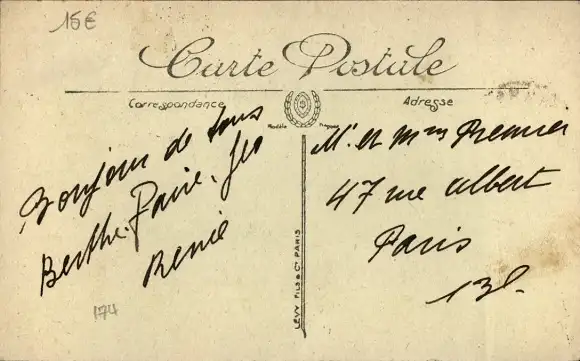 15€
Carte Postale
Correspondance
Adresse
Bonjour de tous
Berthe.
Renée
LÉVY FILS & Cie PARIS
Mr. et Mme Premier
47 rue Albert
Paris
13e.
174